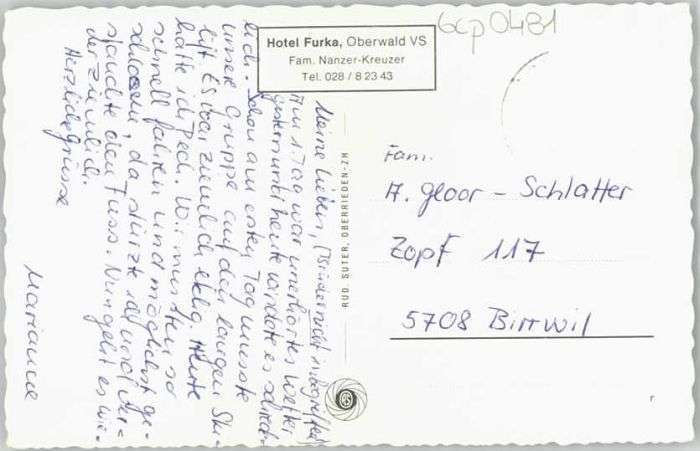 bcp0431
Hotel Furka, Oberwald VS
Fam. Nanzer-Kreuzer
Tel. 028 / 8 23 43
Meine Lieben, (Bünder nicht inbegriffen)
Am 1. Tag war unerhörtes Wetter
gestern und heute windete es schreck-
lich. Schon am ersten Tag musste
unsere Gruppe auf den langen Ski-
lift. Es war ziemlich eklig. Heute
hatte ich Pech. Wir mussten so
schnell fahren und möglichst ge-
schlossen, da stürzte ich und ver-
stauchte den Fuss. Nun geht es wie-
der ziemlich.
Herzliche Grüsse
Marianne
RUD. SUTER, OBERRIEDEN-ZH
RS
Fam.
A. Gloor - Schlatter
Zopf 117
5708 Birrwil